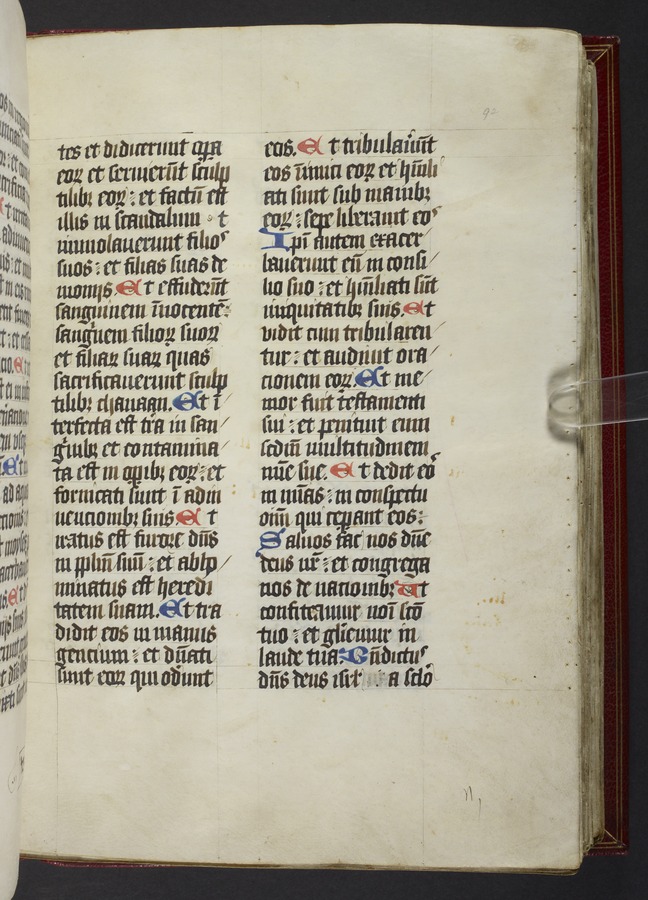 tes et didicerunt opa
eoꝝ et seruierūt sculp
tilibꝫ eoꝝ : et factū est
illis in scandalum · t
immolauerunt filioꝰ
suos : et filias suas de
monijs. Et effuderūt
sanguinem īnocentē :
sanguem filioꝝ suoꝝ
et filiaꝝ suaꝝ quas
sacrificauerunt sculp
tilibꝫ chanaan. Et ī
terfecta est tra in san/
g̾nibꝫ et contamina/
ta est in opibꝫ eoꝝ : et
fornicati sunt ī adin
uencionibꝫ suis Et
iratus est furore dn̄s
in pplm̄ suū : et abho/
minatus est heredi
tatem suam. Et tra
didit eos in manus
gencium : et dn̄ati
sunt eoꝝ qui oderunt
eos. Et tribulauer̄t
eos īimici eoꝝ et hūili
ati sunt sub manibꝫ
eoꝝ : sepe liberauit eoˢ
Ipī autem exacer/
bauerunt eū in consi/
lio suo : et hūiliati sūt
iniquitatibꝫ suis. Et
vidit cum tribularen/
tur : et audiuit ora/
cionem eoꝝ. Et me/
mor fuit testamenti
sui : et penituit eum
scdm̄ multitudinem
mīe sue. Et dedit eō
in mīas : in conspectu
oīm qui ceperant eos :
Saluos fac nos dn̄e
deus nr̄ : et congrega
nos de nationibꝫ Ut
confiteamur noī scō
tuo : et gl̄iemur in
laude tua. Bn̄dictuˢ
dn̄s deus isrl a sclō
92